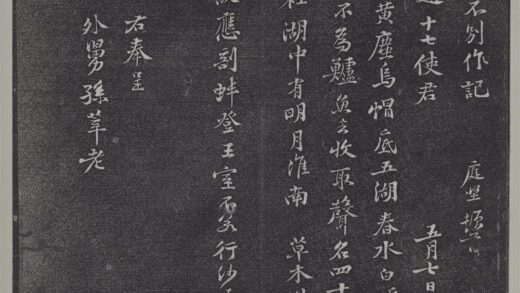 不别作記 庭堅頓首
十七使君 五月七日
黄塵烏帽底五湖春水白
不為鱸魚去收取聲名四十
社湖中有明月淮南草木
應剖蚌登王室不若行沙
右奉呈
外舅孫莘老